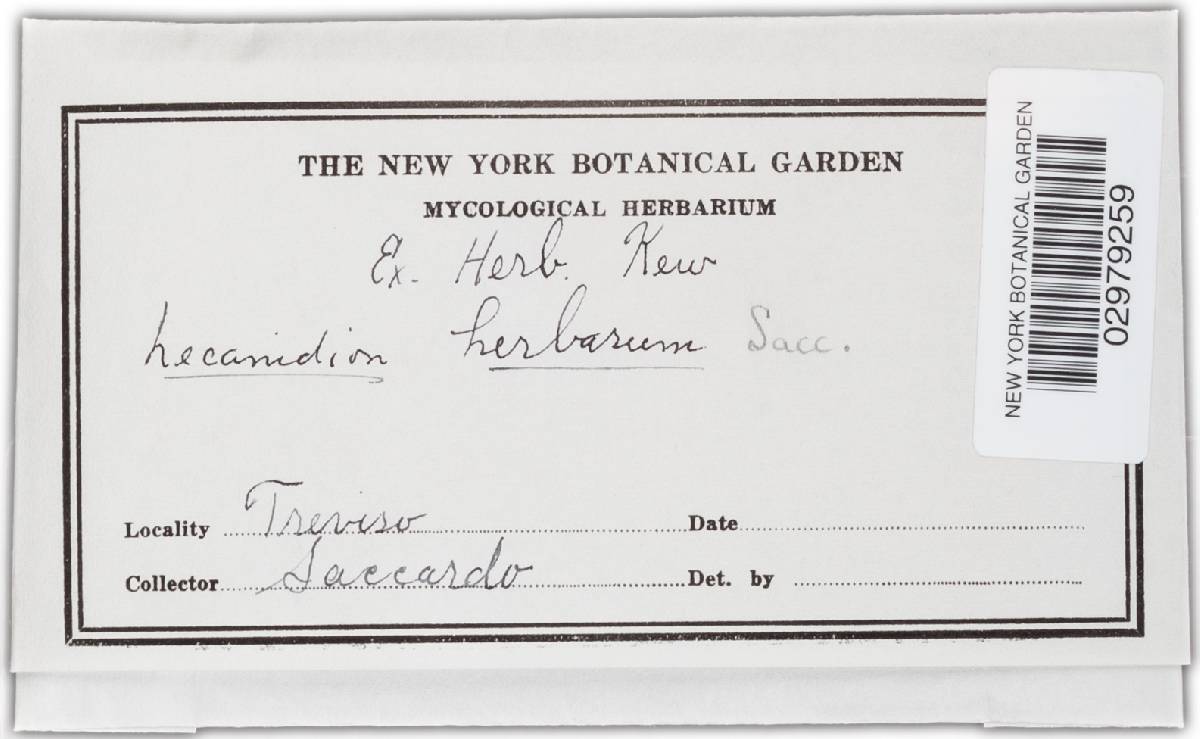 THE NEW YORK BOTANICAL GARDEN
MYCOLOGICAL HERBARIUM
Ex. Herb. Kew
Lecanidion herbarum Sacc.
Locality Treviso Date
Collector Saccardo Det. by
NEW YORK BOTANICAL GARDEN
02979259